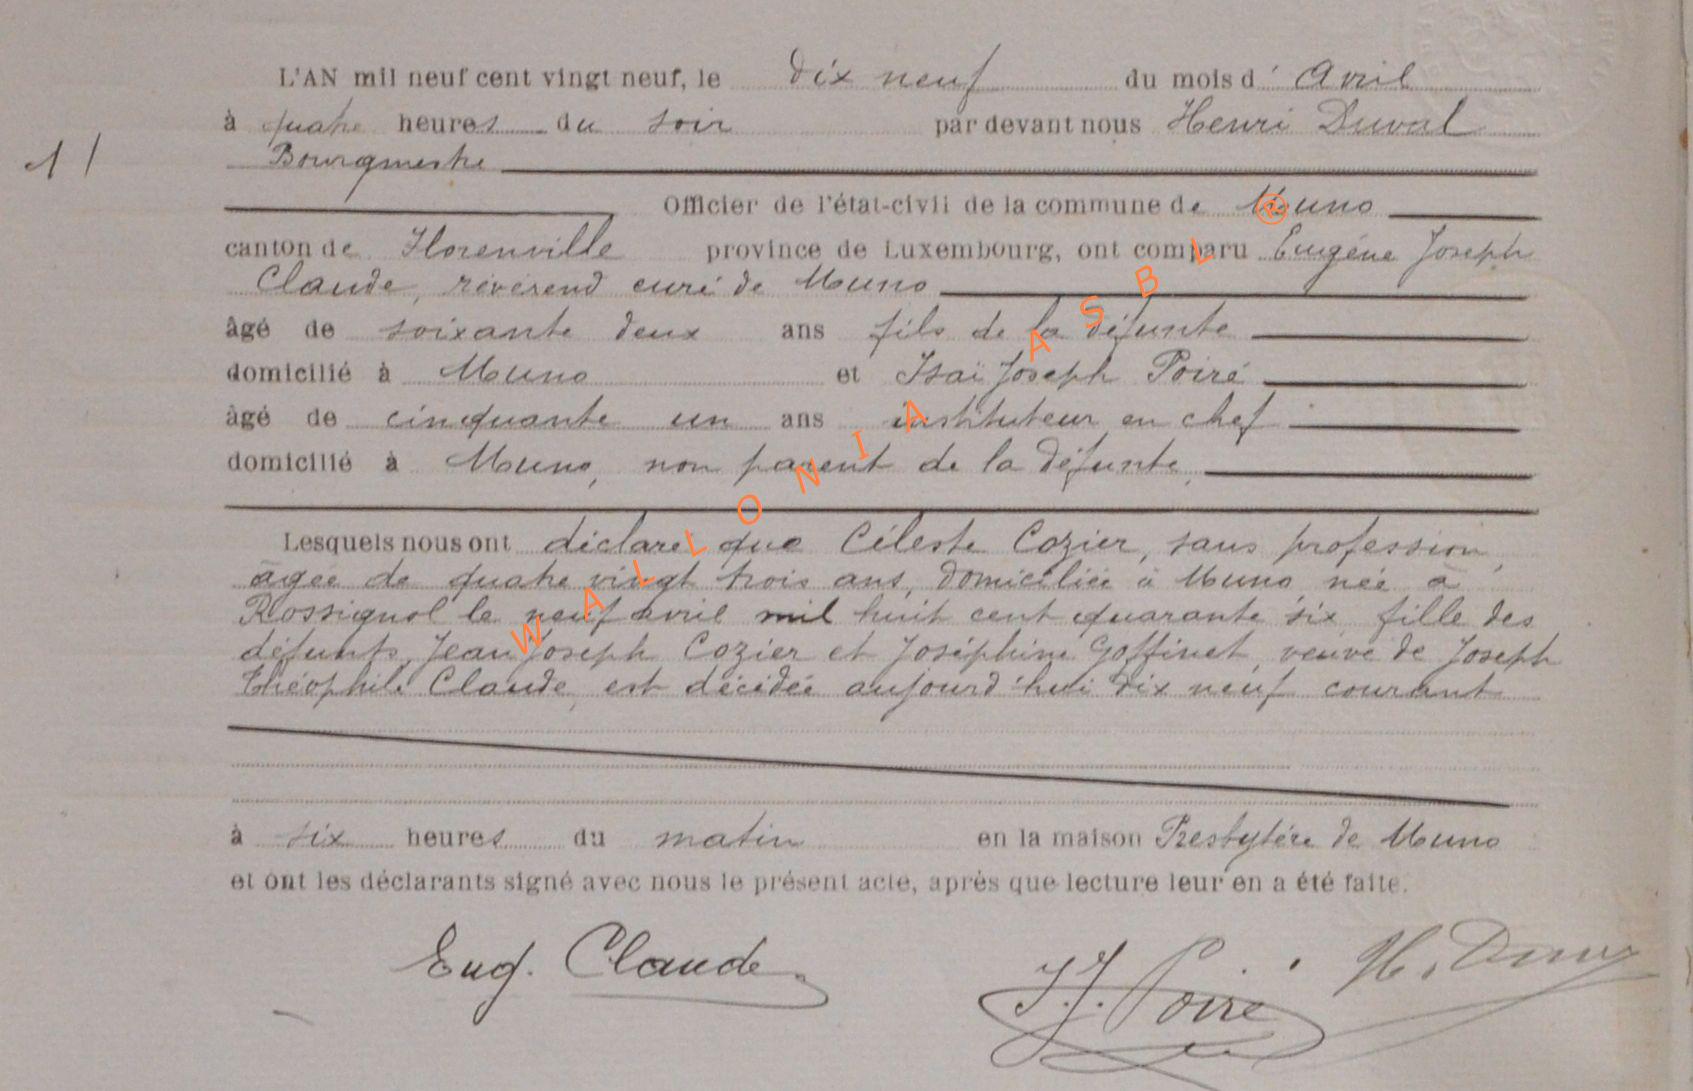 L'AN mil neuf cent vingt neuf, le dix neuf du mois d' Avril
à quatre heures du soir par devant nous Henri Duval
11
Bourgmestre
Officier de l'état-civil de la commune de Muno
canton de Florenville province de Luxembourg, ont comparu Eugène Joseph
Claude, révérend curé de Muno
âgé de soixante deux ans fils de la défunte
domicilié à Muno et Isaï Joseph Poiré
âgé de cinquante un ans instituteur en chef
domicilié à Muno, non parent de la défunte,
Lesquels nous ont déclaré que Céleste Cozier, sans profession,
âgée de quatre vingt trois ans, domiciliée à Muno née à
Rossignol le neuf avril mil huit cent quarante six, fille des
défunts, Jean Joseph Cozier et Joséphine Goffinet, veuve de Joseph
Théophile Claude, est décédée aujourd'hui dix neuf courant
à six heures du matin en la maison Presbytère de Muno
et ont les déclarants signé avec nous le présent acte, après que lecture leur en a été faite.
Eug. Claude
J. J. Poiré
H. Duval
WALLONIA ASBL ®